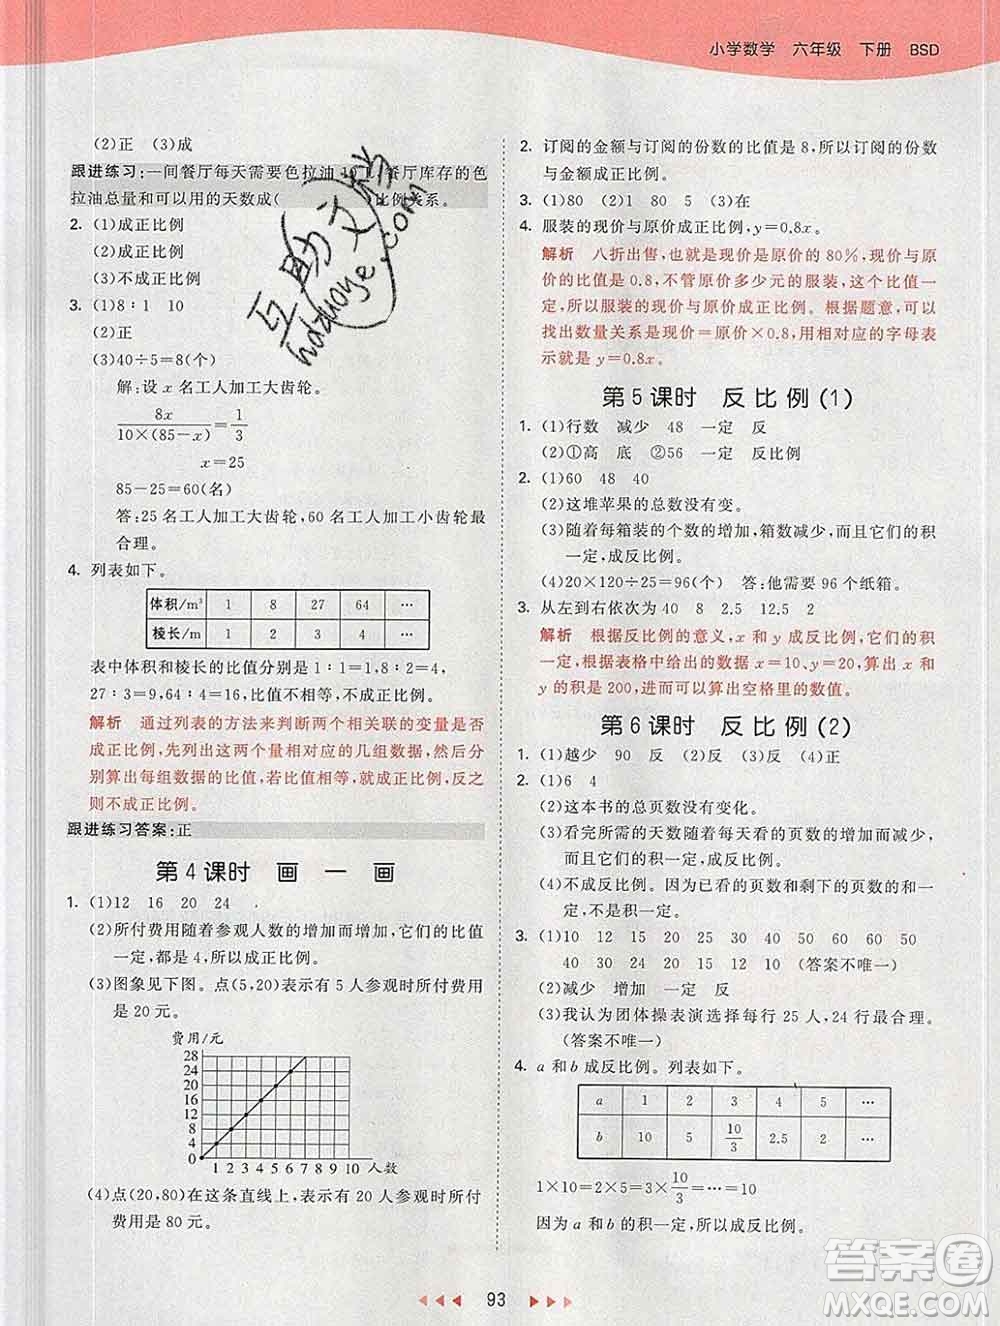 小学数学 六年级 下册 BSD
(2)正 (3)成
跟进练习:一间餐厅每天需要色拉油10 L,餐厅库存的色
拉油总量和可以用的天数成( )比例关系。
2. (1)成正比例
(2)成正比例
(3)不成正比例
3. (1)8∶1 10
(2)正
(3)40÷5=8(个)
解:设 x 名工人加工大齿轮。
8x/10×(85-x)=1/3
x=25
85-25=60(名)
答:25 名工人加工大齿轮,60 名工人加工小齿轮最
合理。
4. 列表如下。
体积/m³ 1 8 27 64 …
棱长/m 1 2 3 4 …
表中体积和棱长的比值分别是 1∶1=1,8∶2=4,
27∶3=9,64∶4=16,比值不相等,不成正比例。
解析 通过列表的方法来判断两个相关联的变量是否
成正比例,先列出这两个量相对应的几组数据,然后分
别算出每组数据的比值,若比值相等,就成正比例,反之
则不成正比例。
跟进练习答案:正
第 4 课时 画 一 画
1. (1)12 16 20 24
(2)所付费用随着参观人数的增加而增加,它们的比值
一定,都是 4,所以成正比例。
(3)图象见下图。点(5,20)表示有 5 人参观时所付费用
是 20 元。
费用/元
28
24
20
16
12
8
4
0
1 2 3 4 5 6 7 8 9 10 人数
(4)点(20,80)在这条直线上,表示有 20 人参观时所付
费用是 80 元。
2. 订阅的金额与订阅的份数的比值是 8,所以订阅的份数
与金额成正比例。
3. (1)80 (2)1 80 5 (3)在
4. 服装的现价与原价成正比例,y=0.8x。
解析 八折出售,也就是现价是原价的 80%,现价与原
价的比值是 0.8,不管原价多少元的服装,这个比值一
定,所以服装的现价与原价成正比例。根据题意,可以
找出数量关系是现价=原价×0.8,用相对应的字母表
示就是 y=0.8x。
第 5 课时 反 比 例 (1)
1. (1)行数 减少 48 一定 反
(2)①高 底 ②56 一定 反比例
2. (1)60 48 40
(2)这堆苹果的总数没有变。
(3)随着每箱装的个数的增加,箱数减少,而且它们的积
一定,成反比例。
(4)20×120÷25=96(个) 答:他需要 96 个纸箱。
3. 从左到右依次为 40 8 2.5 12.5 2
解析 根据反比例的意义,x 和 y 成反比例,它们的积
一定;根据表格中给出的数据 x=10、y=20,算出 x 和
y 的积是 200,进而可以算出空格里的数值。
第 6 课时 反 比 例 (2)
1. (1)越少 90 反 (2)反 (3)反 (4)正
2. (1)6 4
(2)这本书的总页数没有变化。
(3)看完所需的天数随着每天看的页数的增加而减少,
而且它们的积一定,成反比例。
(4)不成反比例。因为已看的页数和剩下的页数的和一
定,而不是积一定。
3. (1)10 12 15 20 30 50 60 60 50
40 30 20 15 12 10 (答案不唯一)
(2)减少 增加 一定 反
(3)我认为团体操表演选择每行 25 人,24 行最合理。
(答案不唯一)
4. a 和 b 成反比例。列表如下。
a 1 2 3 4 5 …
b 10 5 10/3 2.5 2 …
1×10=2×5=3×10/3=…=10
因为 a 和 b 的积一定,所以成反比例。
93
答案圈
MXQE.COM